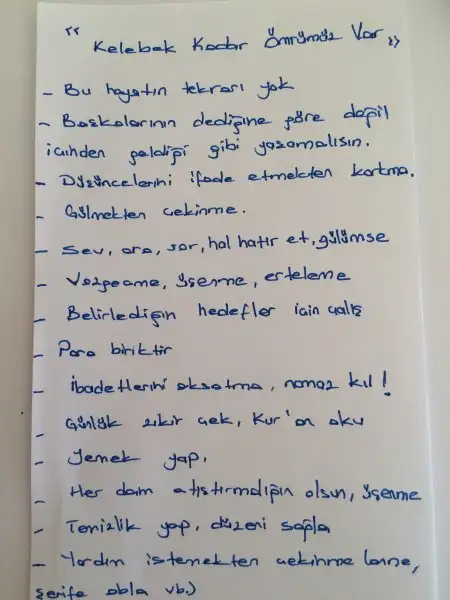 "Kelebek Kadar Ömrümüz Var"
- Bu hayatın tekrarı yok
- Başkalarının dediğine göre değil
içinden geldiği gibi yaşamalısın.
- Düşüncelerini ifade etmekten korkma.
- Gülmekten çekinme.
- Sev, ara, sor, hal hatır et, gülümse
- Vazgeçme, üşenme, erteleme
- Belirlediğin hedefler için çalış
- Para biriktir
- İbadetlerini aksatma, namaz kıl!
- Günlük zikir çek, Kur'an oku
- Yemek yap,
- Her daim atıştırmalığın olsun, üşenme
- Temizlik yap, düzeni sağla
- Yardım istemekten çekinme
şerife abla vb.)